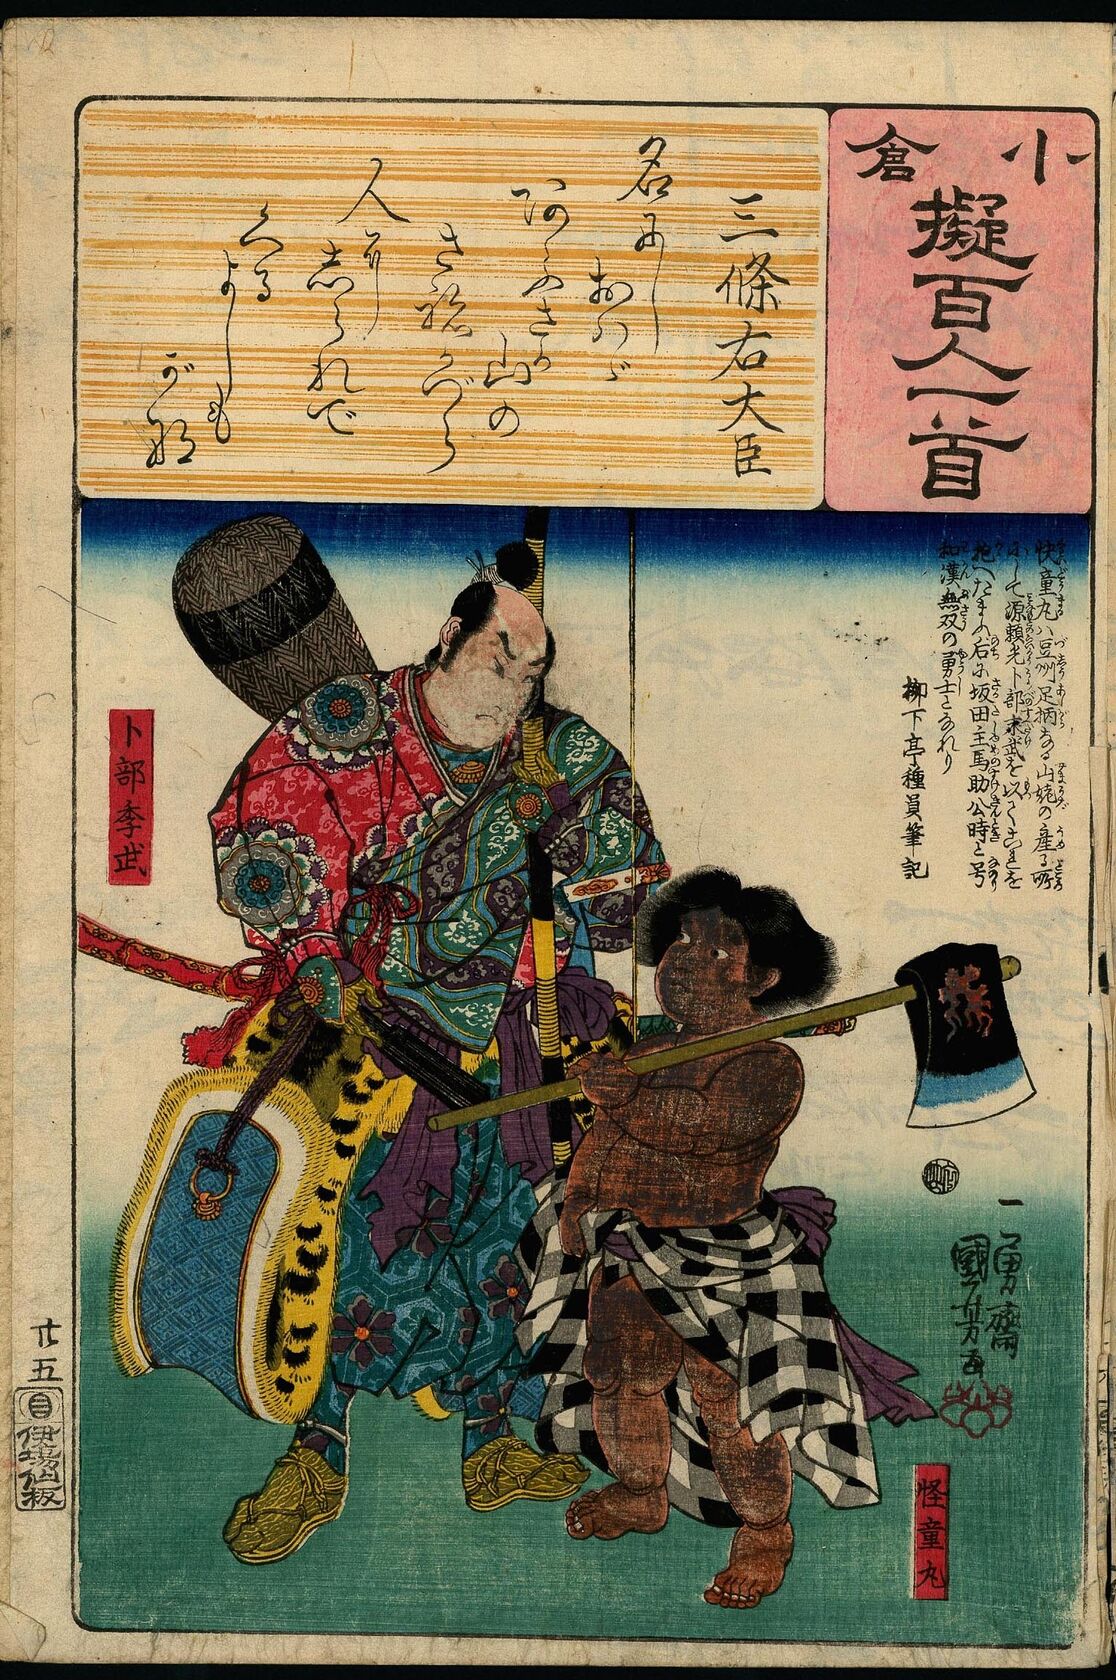 小倉
擬百人一首
三條右大臣
名にし
おはゞ
あふさか
山の
さねかづら
人に
志られで
くる
よしも
がな
快童丸ハ豆州足柄なる山姥の産る所
にして源頼光卜部末武を以てこれを
抱へたまふ后に坂田主馬助公時と号
和漢無双の勇士となれり
柳下亭種員筆記
卜部季武
怪童丸
一勇齋
國芳画
廿五
伊場仙板